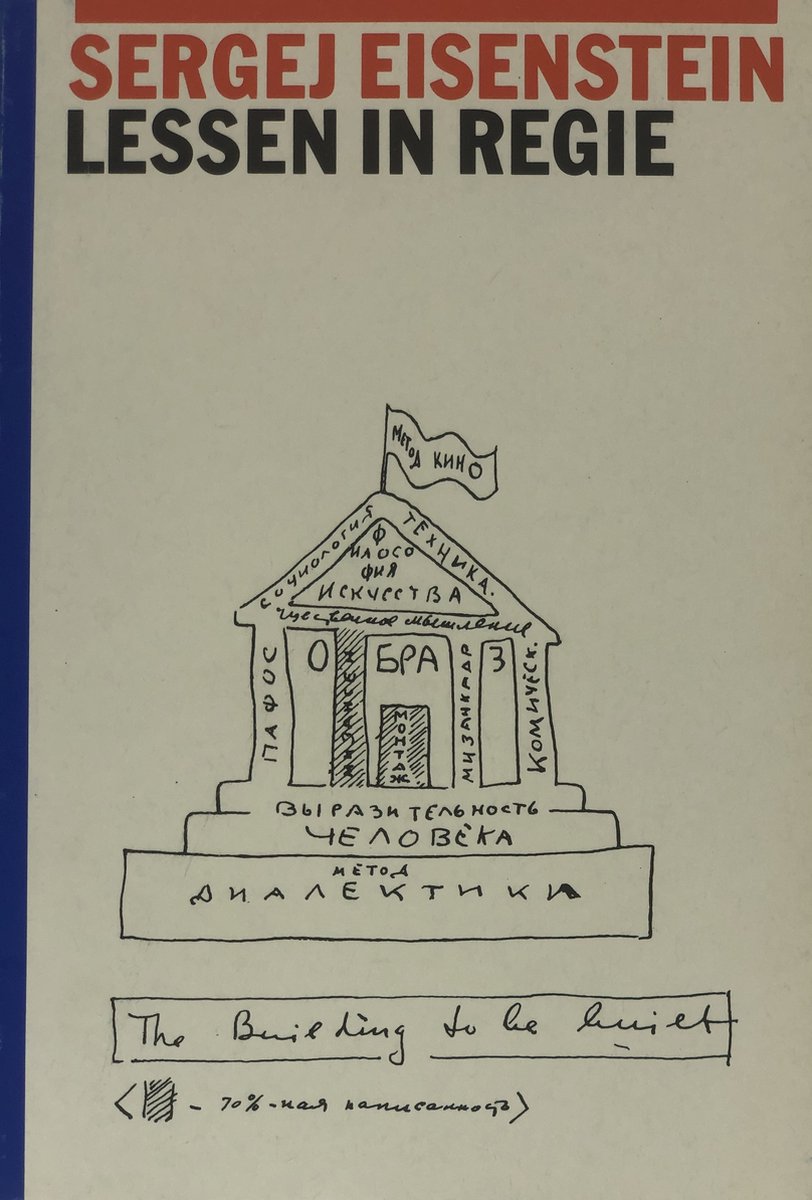 SERGEJ EISENSTEIN
LESSEN IN REGIE
МЕТОД КИНО
СОЦИОЛОГИЯ
ТЕХНИКА.
Ф
ИЛОСО
ФИЯ
ИСКУССТВА
чувственное мышление
ПАФОС
О
МИЗАНСЦЕН
БРА
МОНТАЖ
МИЗАНКАДР
З
КОМИЧЕСК.
ВЫРАЗИТЕЛЬНОСТЬ
ЧЕЛОВЕКА
МЕТОД
ДИАЛЕКТИКИ
The Building to be built
– 70%-ная написанность